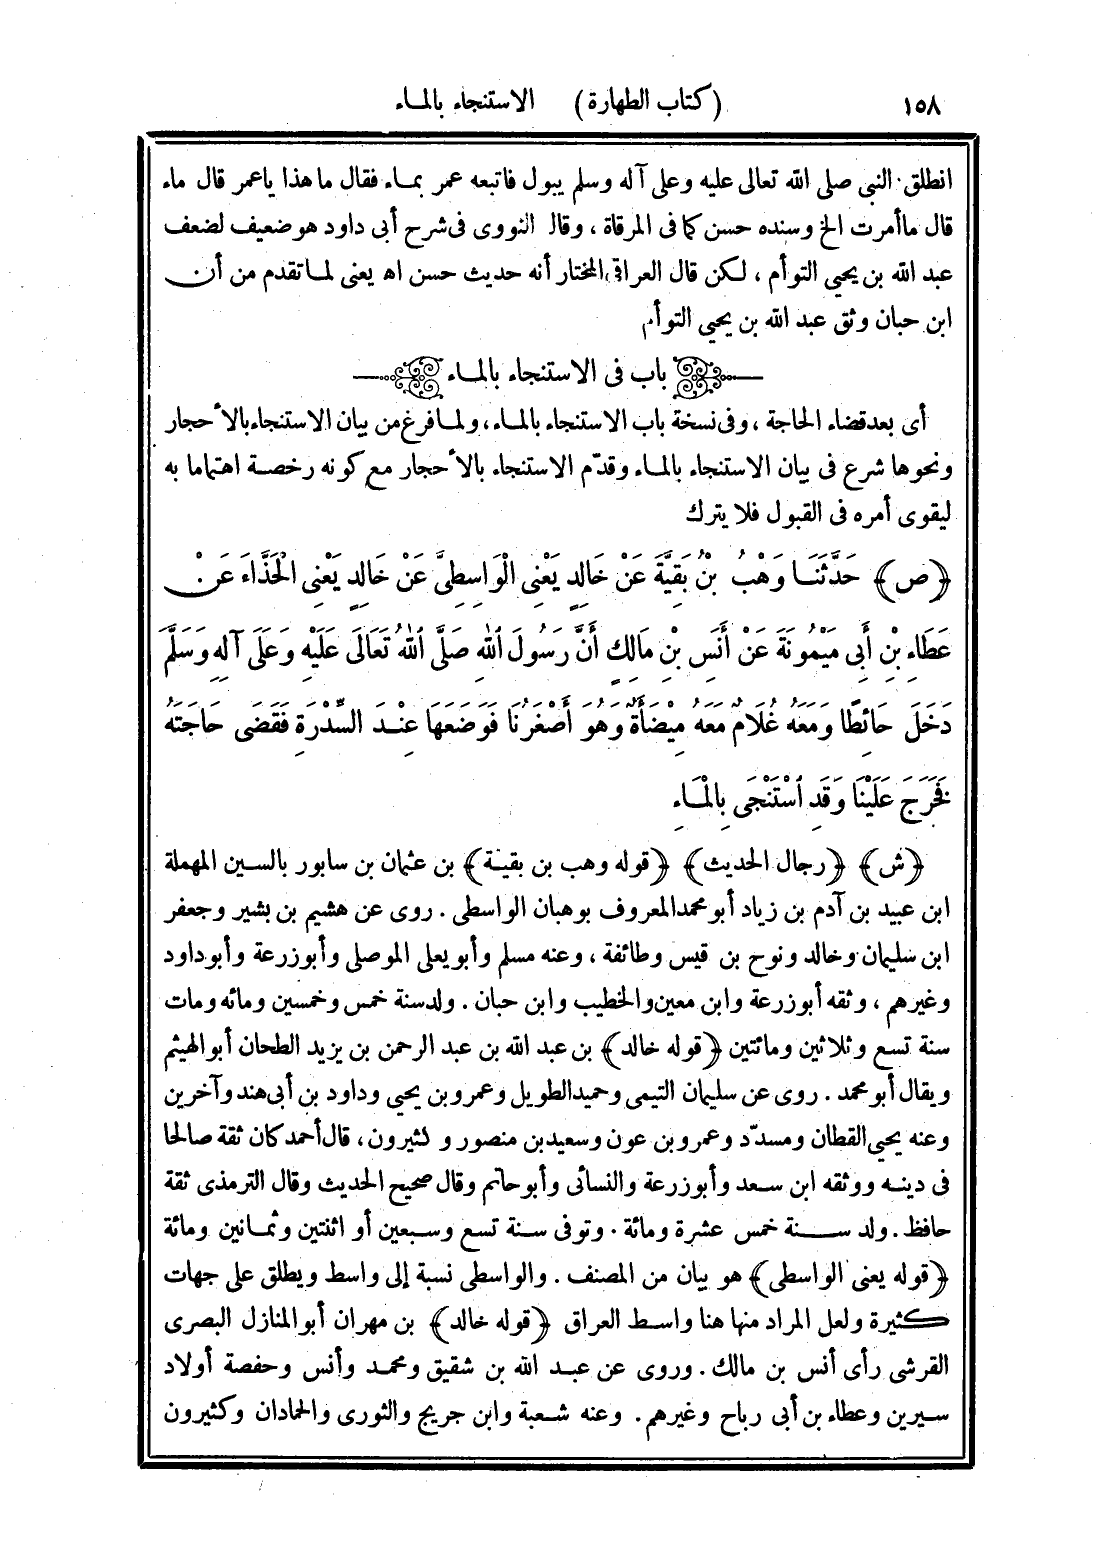 ١٥٨ (كتاب الطهارة) الاستنجاء بالماء
انطلق النبى صلى الله تعالى عليه وعلى آله وسلم يبول فاتبعه عمر بماء فقال ما هذا ياعمر قال ماء
قال ماأمرت الخ وسنده حسن كما فى المرقاة ، وقال النووى فى شرح أبى داود هو ضعيف لضعف
عبد الله بن يحيى التوأم ، لكن قال العراقى المختار أنه حديث حسن اه يعنى لما تقدم من أن
ابن حبان وثق عبد الله بن يحيى التوأم
باب فى الاستنجاء بالماء
أى بعد قضاء الحاجة ، وفى نسخة باب الاستنجاء بالماء ، ولما فرغ من بيان الاستنجاء بالأحجار
ونحوها شرع فى بيان الاستنجاء بالماء وقدّم الاستنجاء بالأحجار مع كونه رخصة اهتماما به
ليقوى أمره فى القبول فلا يترك
﴿ص﴾ حَدَّثَنَا وَهْبُ بْنُ بَقِيَّةَ عَنْ خَالِدٍ يَعْنِى الْوَاسِطِىَّ عَنْ خَالِدٍ يَعْنِى الْحَذَّاءَ عَنْ
عَطَاءِ بْنِ أَبِى مَيْمُونَةَ عَنْ أَنَسِ بْنِ مَالِكٍ أَنَّ رَسُولَ اللهِ صَلَّى اللهُ تَعَالَى عَلَيْهِ وَعَلَى آلِهِ وَسَلَّمَ
دَخَلَ حَائِطًا وَمَعَهُ غُلَامٌ مَعَهُ مِيْضَأَةٌ وَهُوَ أَصْغَرُنَا فَوَضَعَهَا عِنْدَ السِّدْرَةِ فَقَضَى حَاجَتَهُ
فَخَرَجَ عَلَيْنَا وَقَدِ اسْتَنْجَى بِالْمَاءِ
﴿ش﴾ ﴿رجال الحديث﴾ ﴿قوله وهب بن بقية﴾ بن عثمان بن سابور بالسين المهملة
ابن عبيد بن آدم بن زياد أبو محمد المعروف بوهبان الواسطى . روى عن هشيم بن بشير وجعفر
ابن سليمان وخالد ونوح بن قيس وطائفة ، وعنه مسلم وأبو يعلى الموصلى وأبو زرعة وأبو داود
وغيرهم ، وثقه أبو زرعة وابن معين والخطيب وابن حبان . ولد سنة خمس وخمسين ومائه ومات
سنة تسع وثلاثين ومائتين ﴿قوله خالد﴾ بن عبد الله بن عبد الرحمن بن يزيد الطحان أبو الهيثم
ويقال أبو محمد . روى عن سليمان التيمى وحميد الطويل وعمرو بن يحيى وداود بن أبى هند وآخرين
وعنه يحيى القطان ومسدّد وعمرو بن عون وسعيد بن منصور و كثيرون ، قال أحمد كان ثقة صالحا
فى دينه ووثقه ابن سعد وأبو زرعة والنسائى وأبو حاتم وقال صحيح الحديث وقال الترمذى ثقة
حافظ . ولد سنة خمس عشرة ومائة . وتوفى سنة تسع وسبعين أو اثنتين وثمانين ومائة
﴿قوله يعنى الواسطى﴾ هو بيان من المصنف . والواسطى نسبة إلى واسط ويطلق على جهات
كثيرة ولعل المراد منها هنا واسط العراق ﴿قوله خالد﴾ بن مهران أبو المنازل البصرى
القرشى رأى أنس بن مالك . وروى عن عبد الله بن شقيق ومحمد وأنس وحفصة أولاد
سيرين وعطاء بن أبى رباح وغيرهم . وعنه شعبة وابن جريج والثورى والحمادان وكثيرون